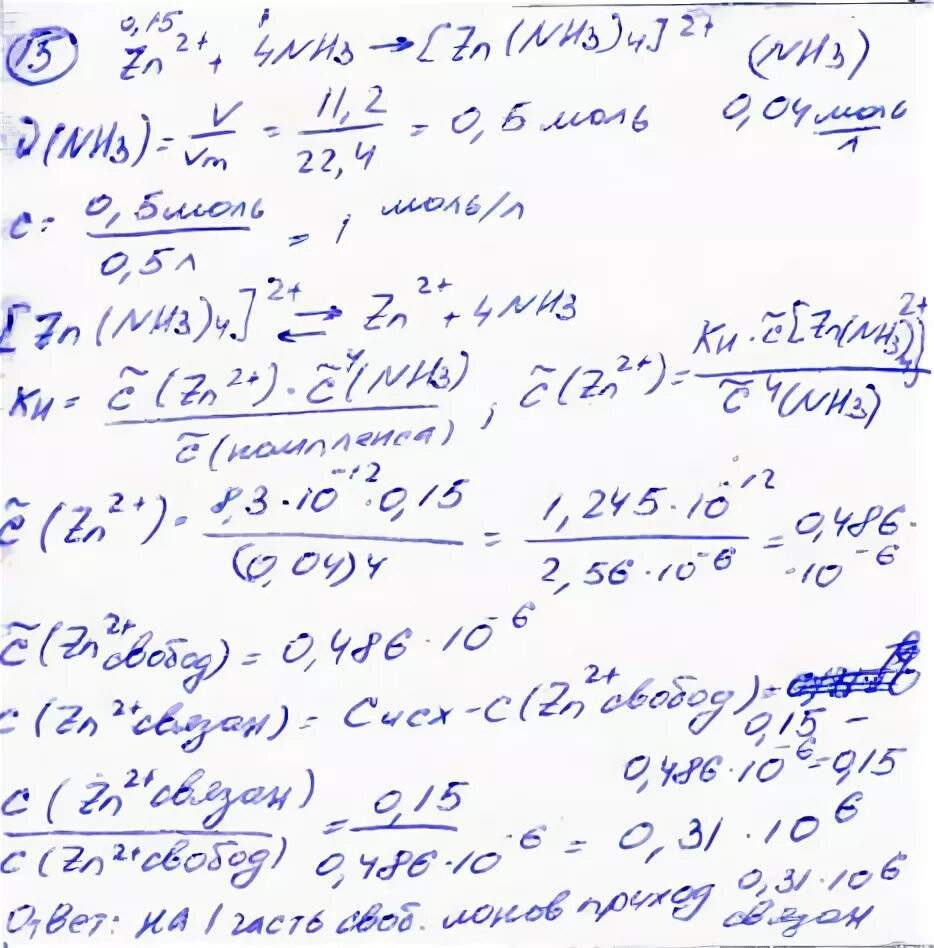 15 0,15 1
Zn²⁺ + 4NH3 → [Zn(NH3)4]²⁺ (NH3)
ν(NH3) = V/Vm = 11,2/22,4 = 0,5 моль 0,04 моль/л
c = 0,5 моль/0,5 л = 1 моль/л
[Zn(NH3)4]²⁺ ⇄ Zn²⁺ + 4NH3
Kн = c̃(Zn²⁺)·c̃⁴(NH3)/c̃(комплекса) ; c̃(Zn²⁺) = Kн·c̃[Zn(NH3)4]²⁺/c̃⁴(NH3)
c̃(Zn²⁺) = 8,3·10⁻¹²·0,15/(0,04)4 = 1,245·10⁻¹²/2,56·10⁻⁶ = 0,486·
·10⁻⁶
c̃(Zn²⁺свобод) = 0,486·10⁻⁶
c(Zn²⁺связан) = Cисх - c(Zn²⁺свобод) =
0,15 -
0,486·10⁻⁶ = 0,15
c(Zn²⁺связан)/c(Zn²⁺свобод) = 0,15/0,486·10⁻⁶ = 0,31·10⁶
Ответ: на 1 часть своб. ионов приход 0,31·10⁶
связан